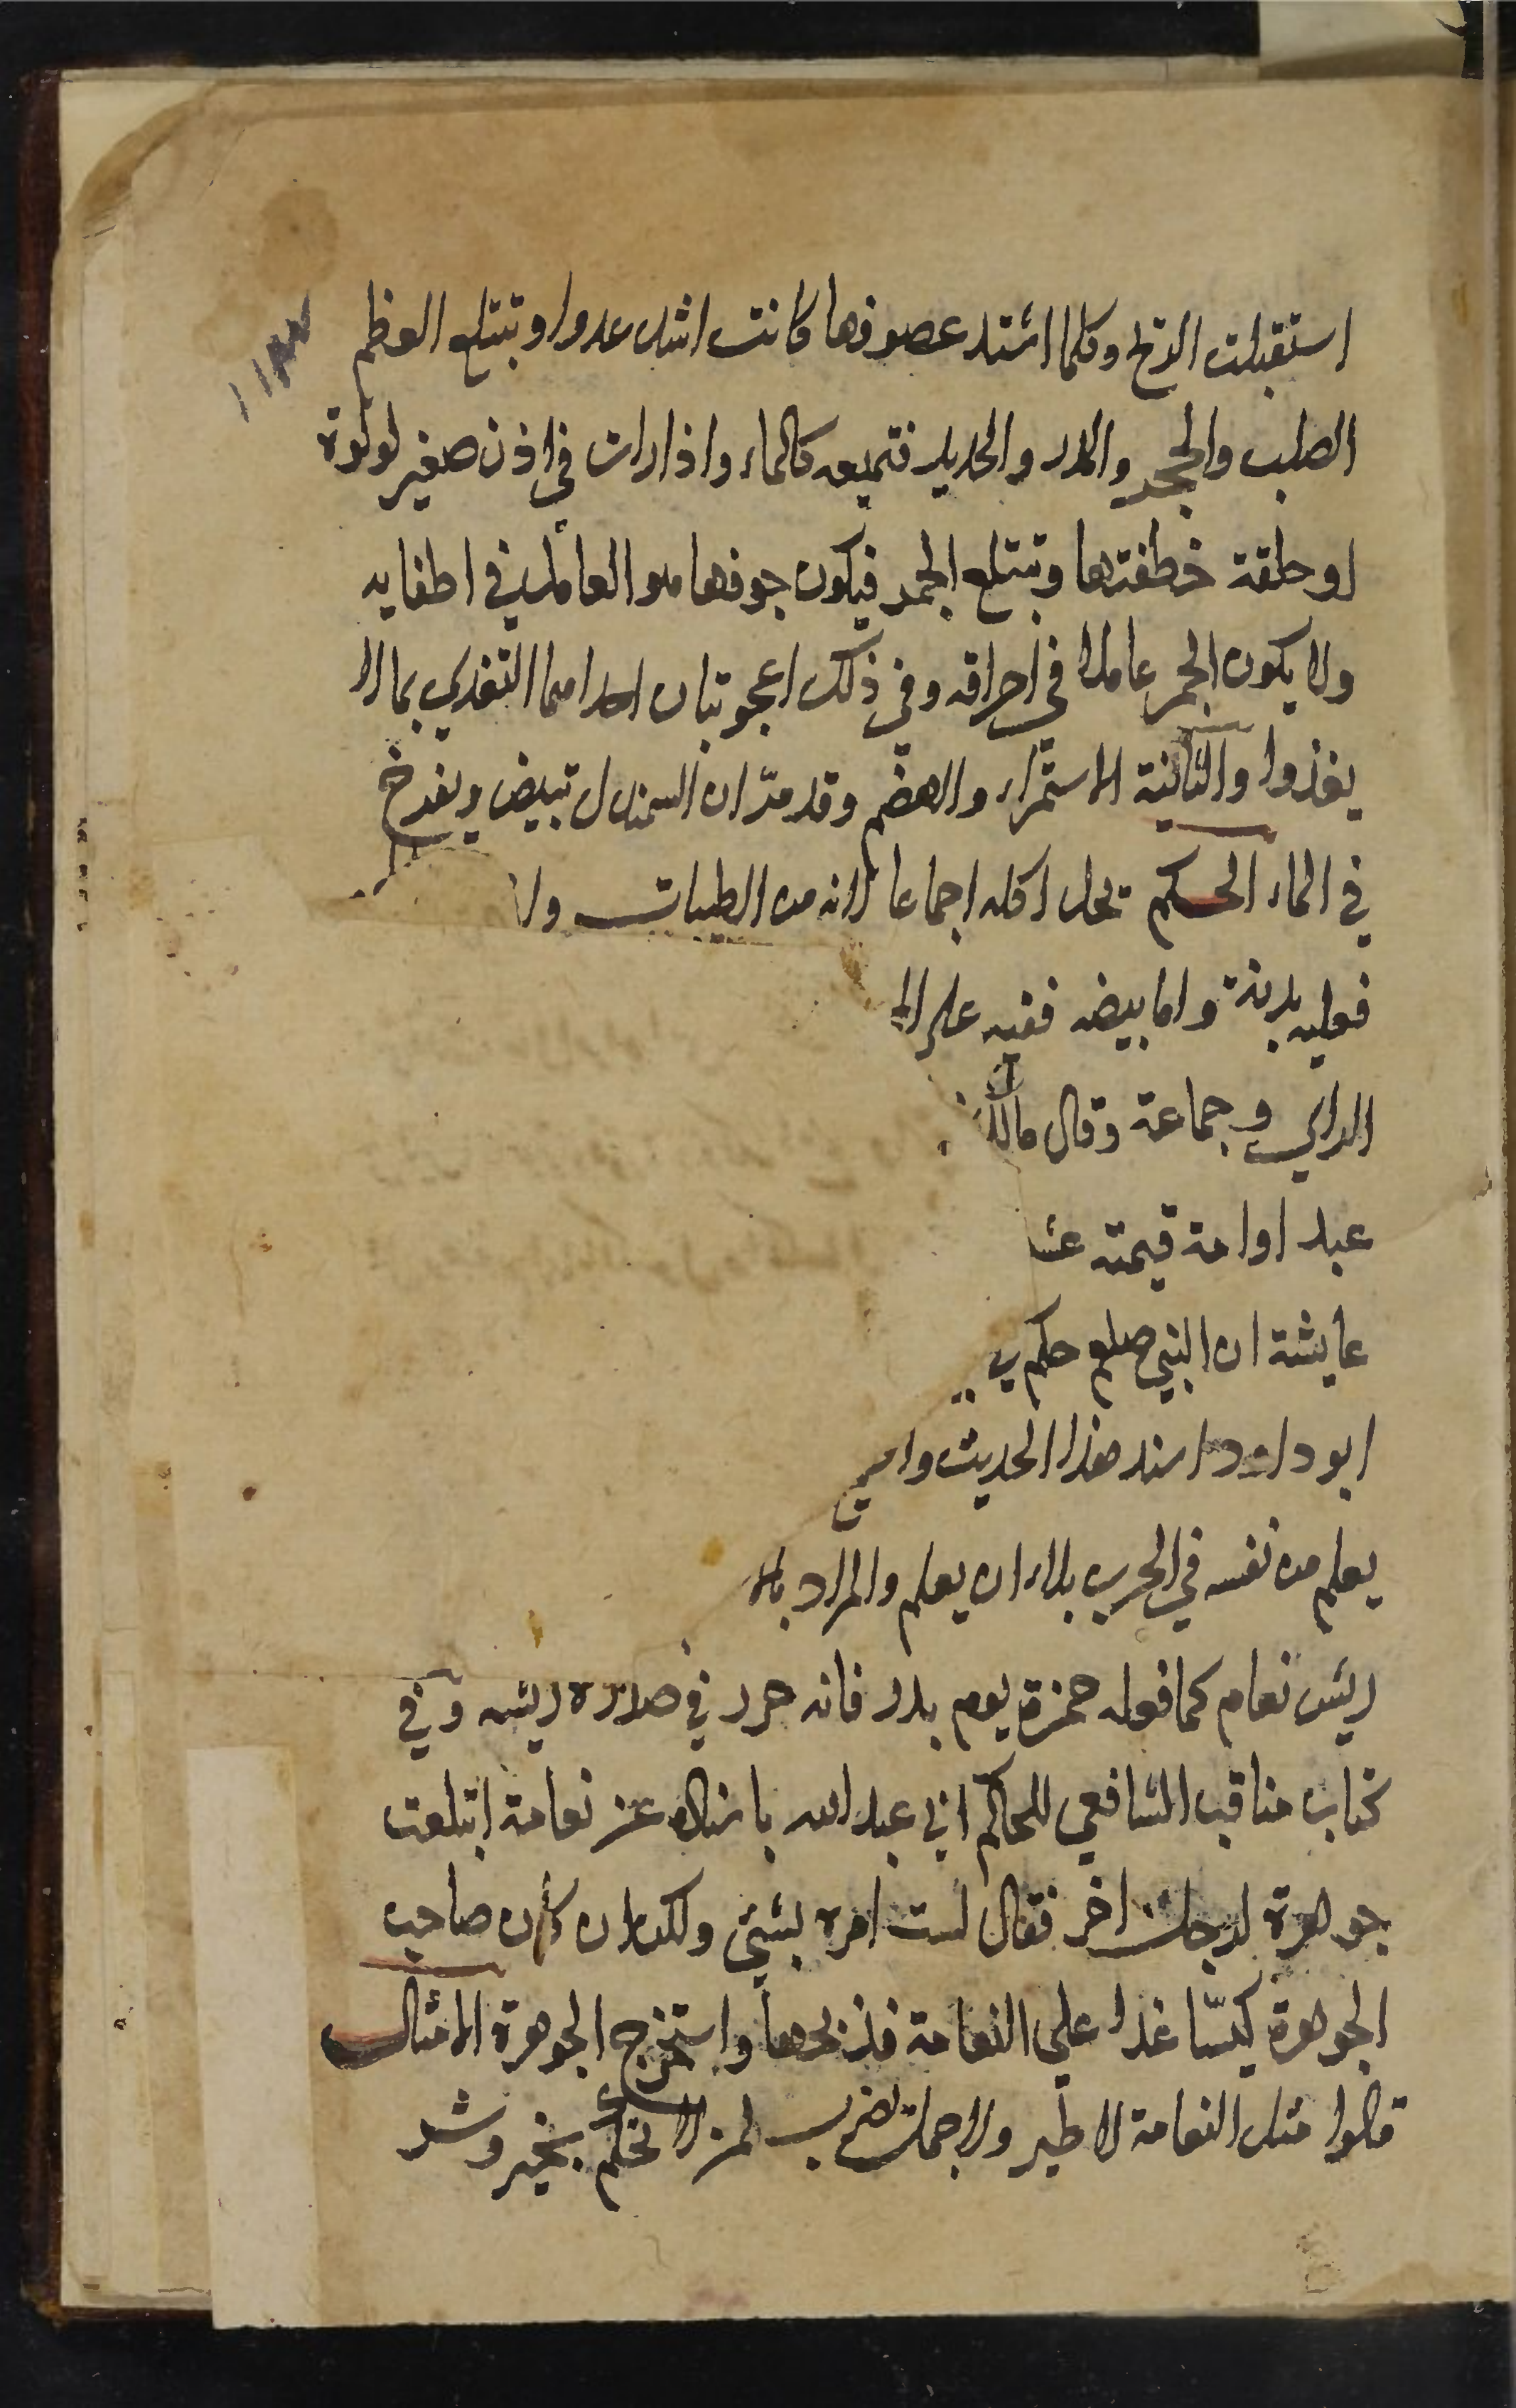 استقبلت الريح وكلما اشتد عصوفها كانت اشد عدوا وتبتلع العظم
الصلب والحجر والمدر والحديد فتميعه كالماء واذا رات في اذن صغير لولوة
او حلقة خطفتها وتبتلع الجمر فيكون جوفها هو العامل في اطفايه
ولا يكون الجمر عاملا في احراقه وفي ذلك اعجوبتان احداهما التغذي بما لا
يغذوا والثانية الاستمراء والهضم وقد مر ان السمندل تبيض ويفرخ
في الماء الحكم يحل اكله اجماعا لانه من الطيبات ولا
فعليه بدنة واما بيضه ففيه على
الراي وجماعة وقال مالك
عبد او امة قيمته عشر
عايشة ان النبي صلعم حكم
ابو داود اسند هذا الحديث
يعلم من نفسه في الحرب بلاء ان يعلم والمراد
ريش نعام كما فعله حمزة يوم بدر فانه حرر في صدره ريشه وفي
كتاب مناقب الشافعي للحاكم ابي عبد الله باسناده عن نعامة ابتلعت
جوهرة لرجل اخر فقال لست امره بشئ ولكن ان كان صاحب
الجوهرة كيّسا غدا على النعامة فذبحها واستخرج الجوهرة الامثال
قالوا مثل النعامة لا طير ولا جمل يضرب لمن لا تحكم بخير وشر